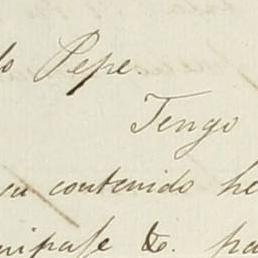 do Pepe.
Tengo
su contenido he
uipaje &. pa